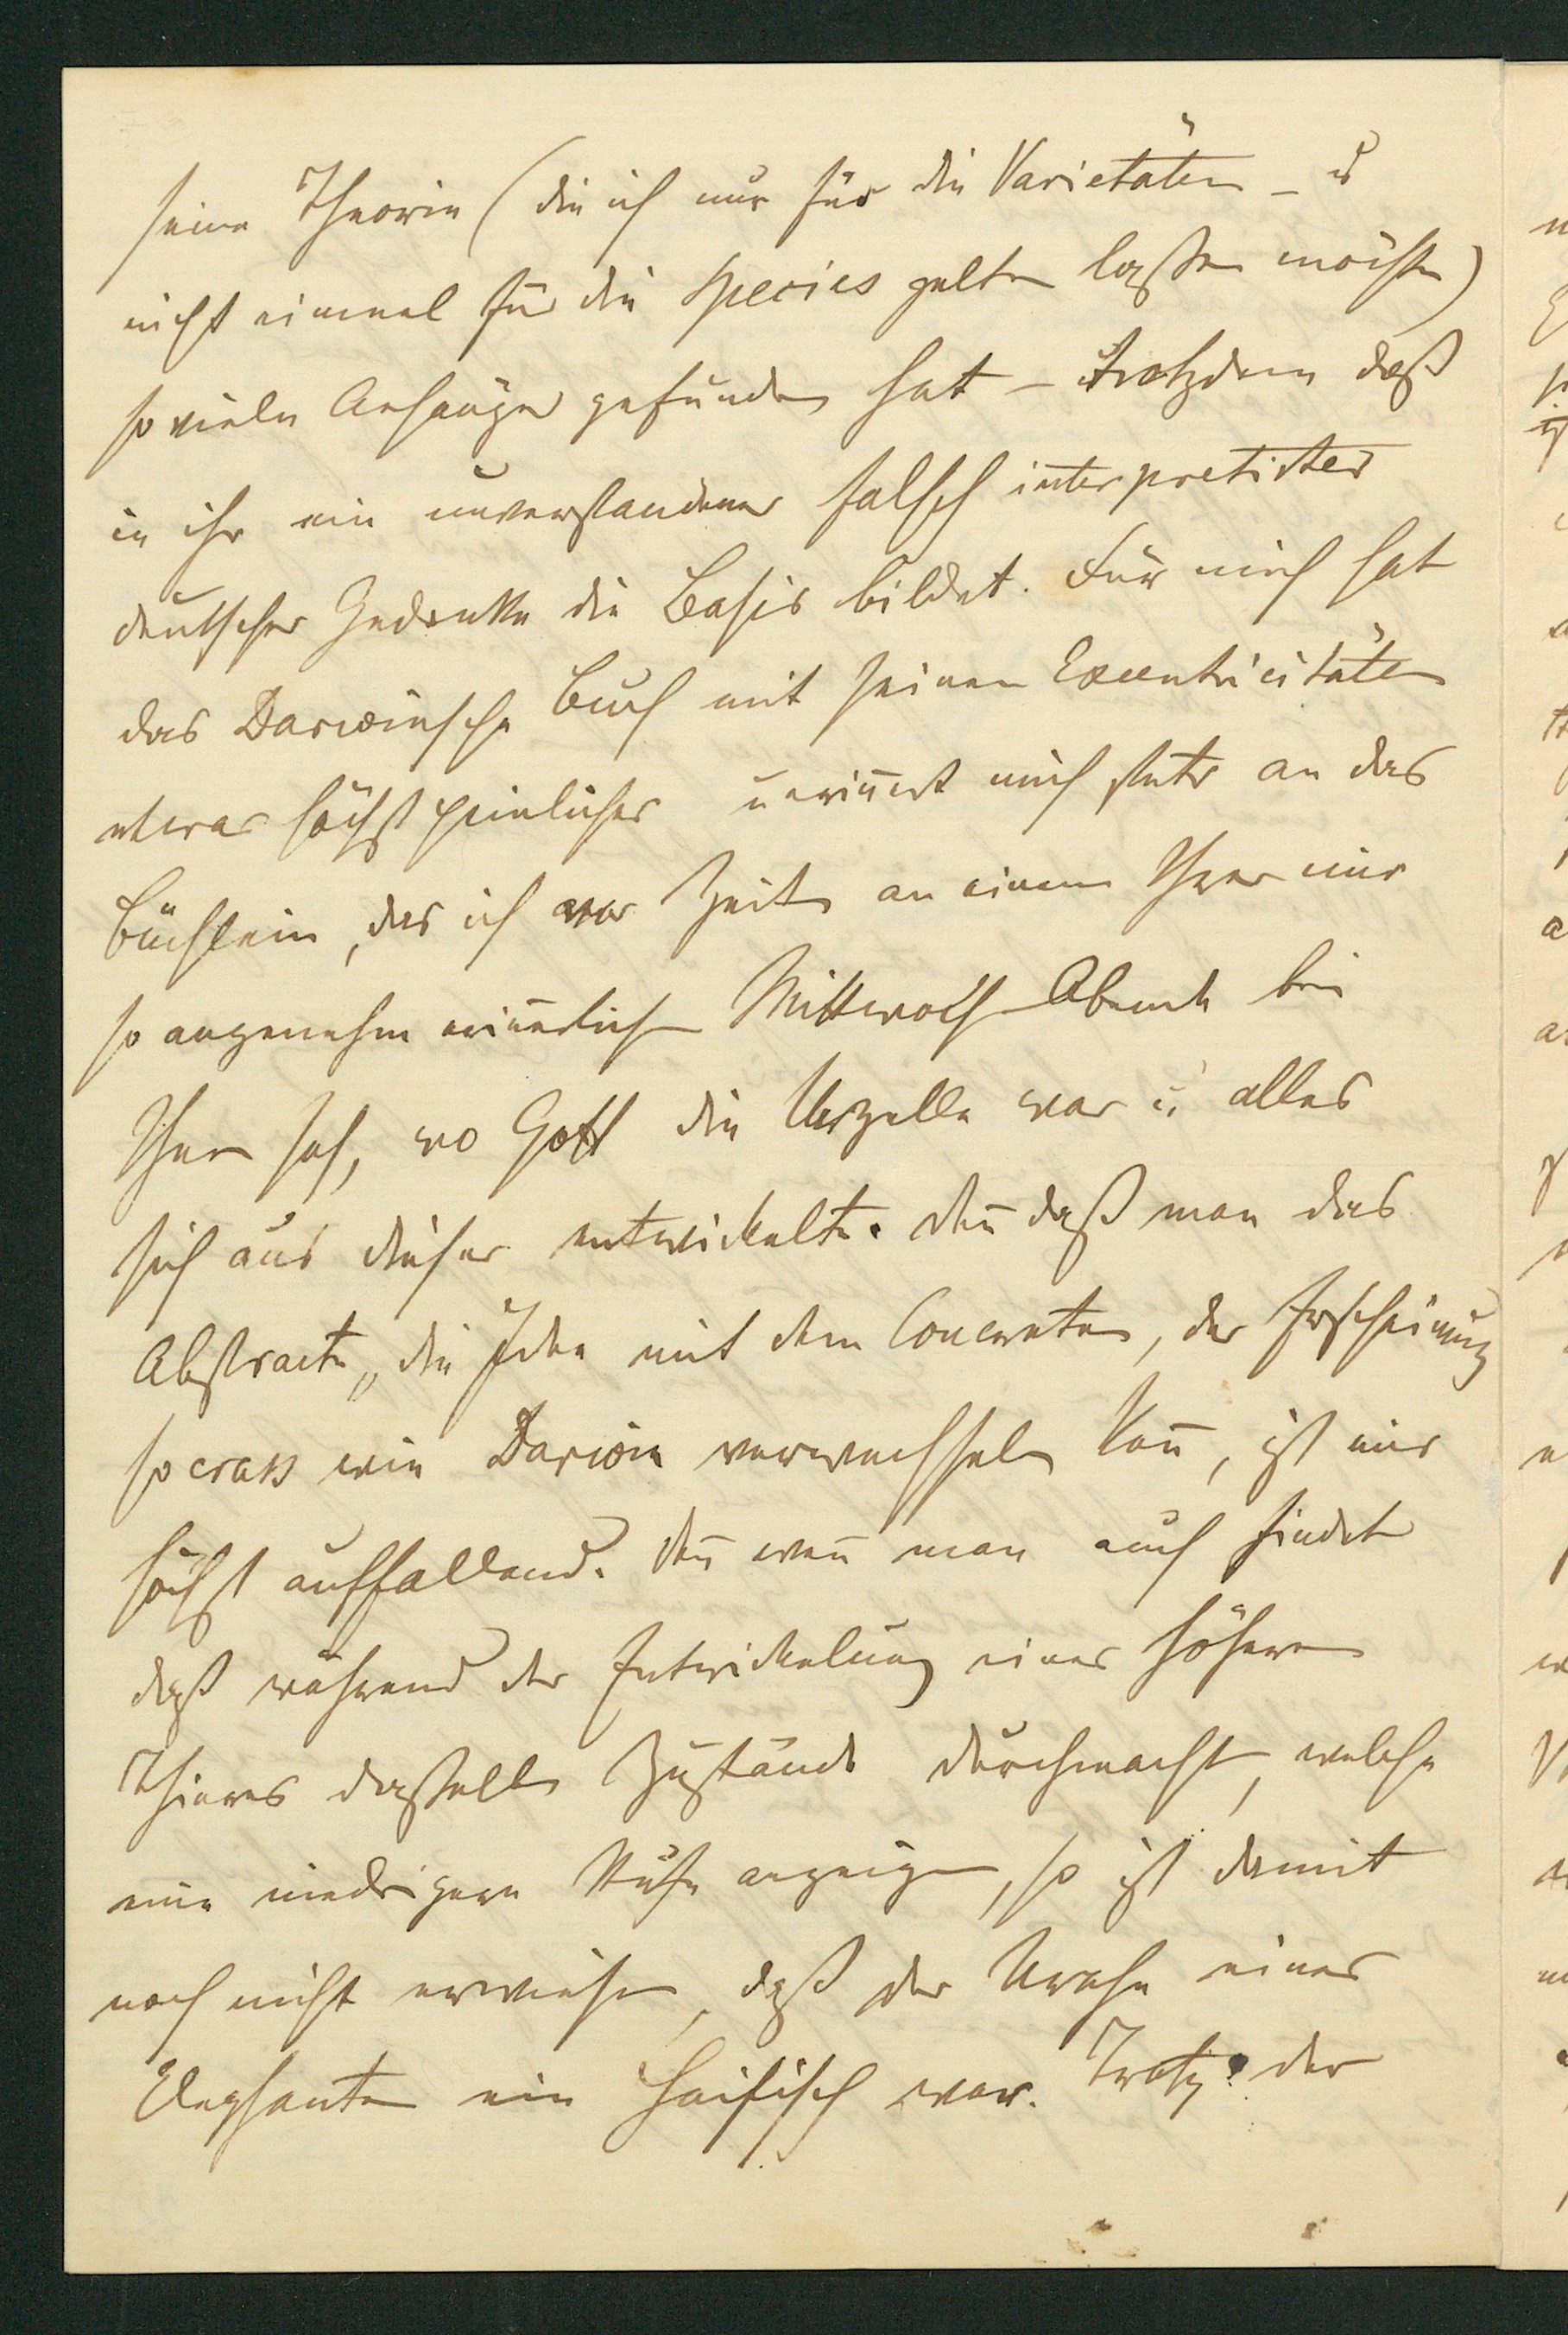 seine Theorie (die ich nur für die Varietäten – u
nicht einmal für die Species gelten laßen möchte)
so viele Anhänger gefunden hat – trotzdem daß
in ihr ein unverstandener falsch interpretirter
deutscher Gedanke die Basis bildet. Für mich hat
das Darwinsche Buch mit seinen Excentricitäten
etwas höchst peinliches u erin̅ert mich stets an das
Büchlein, das ich vor Zeiten an einem Ihrer mir
so angenehm erin̅erlichen Mittwoch-Abende bei
Ihnen sah, wo Gott die Urzelle war u alles
sich aus dieser entwickelte. Den̅ daß man das
Abstracte, die Idee mit dem Concreten, der Erscheinung
so crass wie Darwin verwechseln kan̅, ist mir
höchst auffallend. Den̅ wen̅ man auch findet
daß während der Entwickelung eines höheren
Thieres dasselbe Zustände durchmacht, welche
eine niedrigere Stufe anzeigen, so ist damit
noch nicht erwiesen, daß der Urahn eines
Elephanten ein Haifisch war. Trotz der